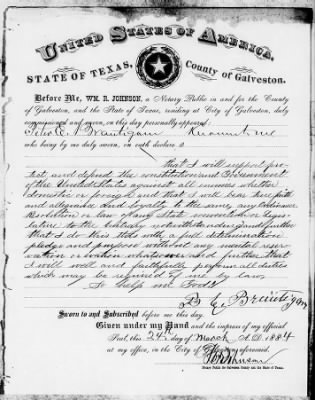 UNITED STATES OF AMERICA,
STATE OF TEXAS,
County of Galveston.
BEFORE ME, WM. R. JOHNSON, a Notary Public in and for the County
of Galveston, and the State of Texas, residing at City of Galveston, duly
commissioned and sworn, on this day personally appeared
Brautigam known to me
who being by me duly sworn, on oath declares
that I will support pro
tect and defend the constitution and Government
of the United States against all enemies whether
domestic or foreign and that I will bear true faith
and allegiance and loyalty to the same, any Ordinance
Resolution or law of any State convention or legis
lature to the contrary notwithstanding and further
that I do this with a full determination
pledge and purpose without any mental reser
vation or evasion whatsoever and further that
I will well and faithfully perform all duties
which may be required of me by law
So help me God
Brautigam
Sworn to and Subscribed before me this day.
Given under my Hand and the impress of my official
Seal, this 24th day of March A.D. 1884
at my office, in the City of Galveston aforesaid.
WRJohnson
Notary Public for Galveston County and the State of Texas.